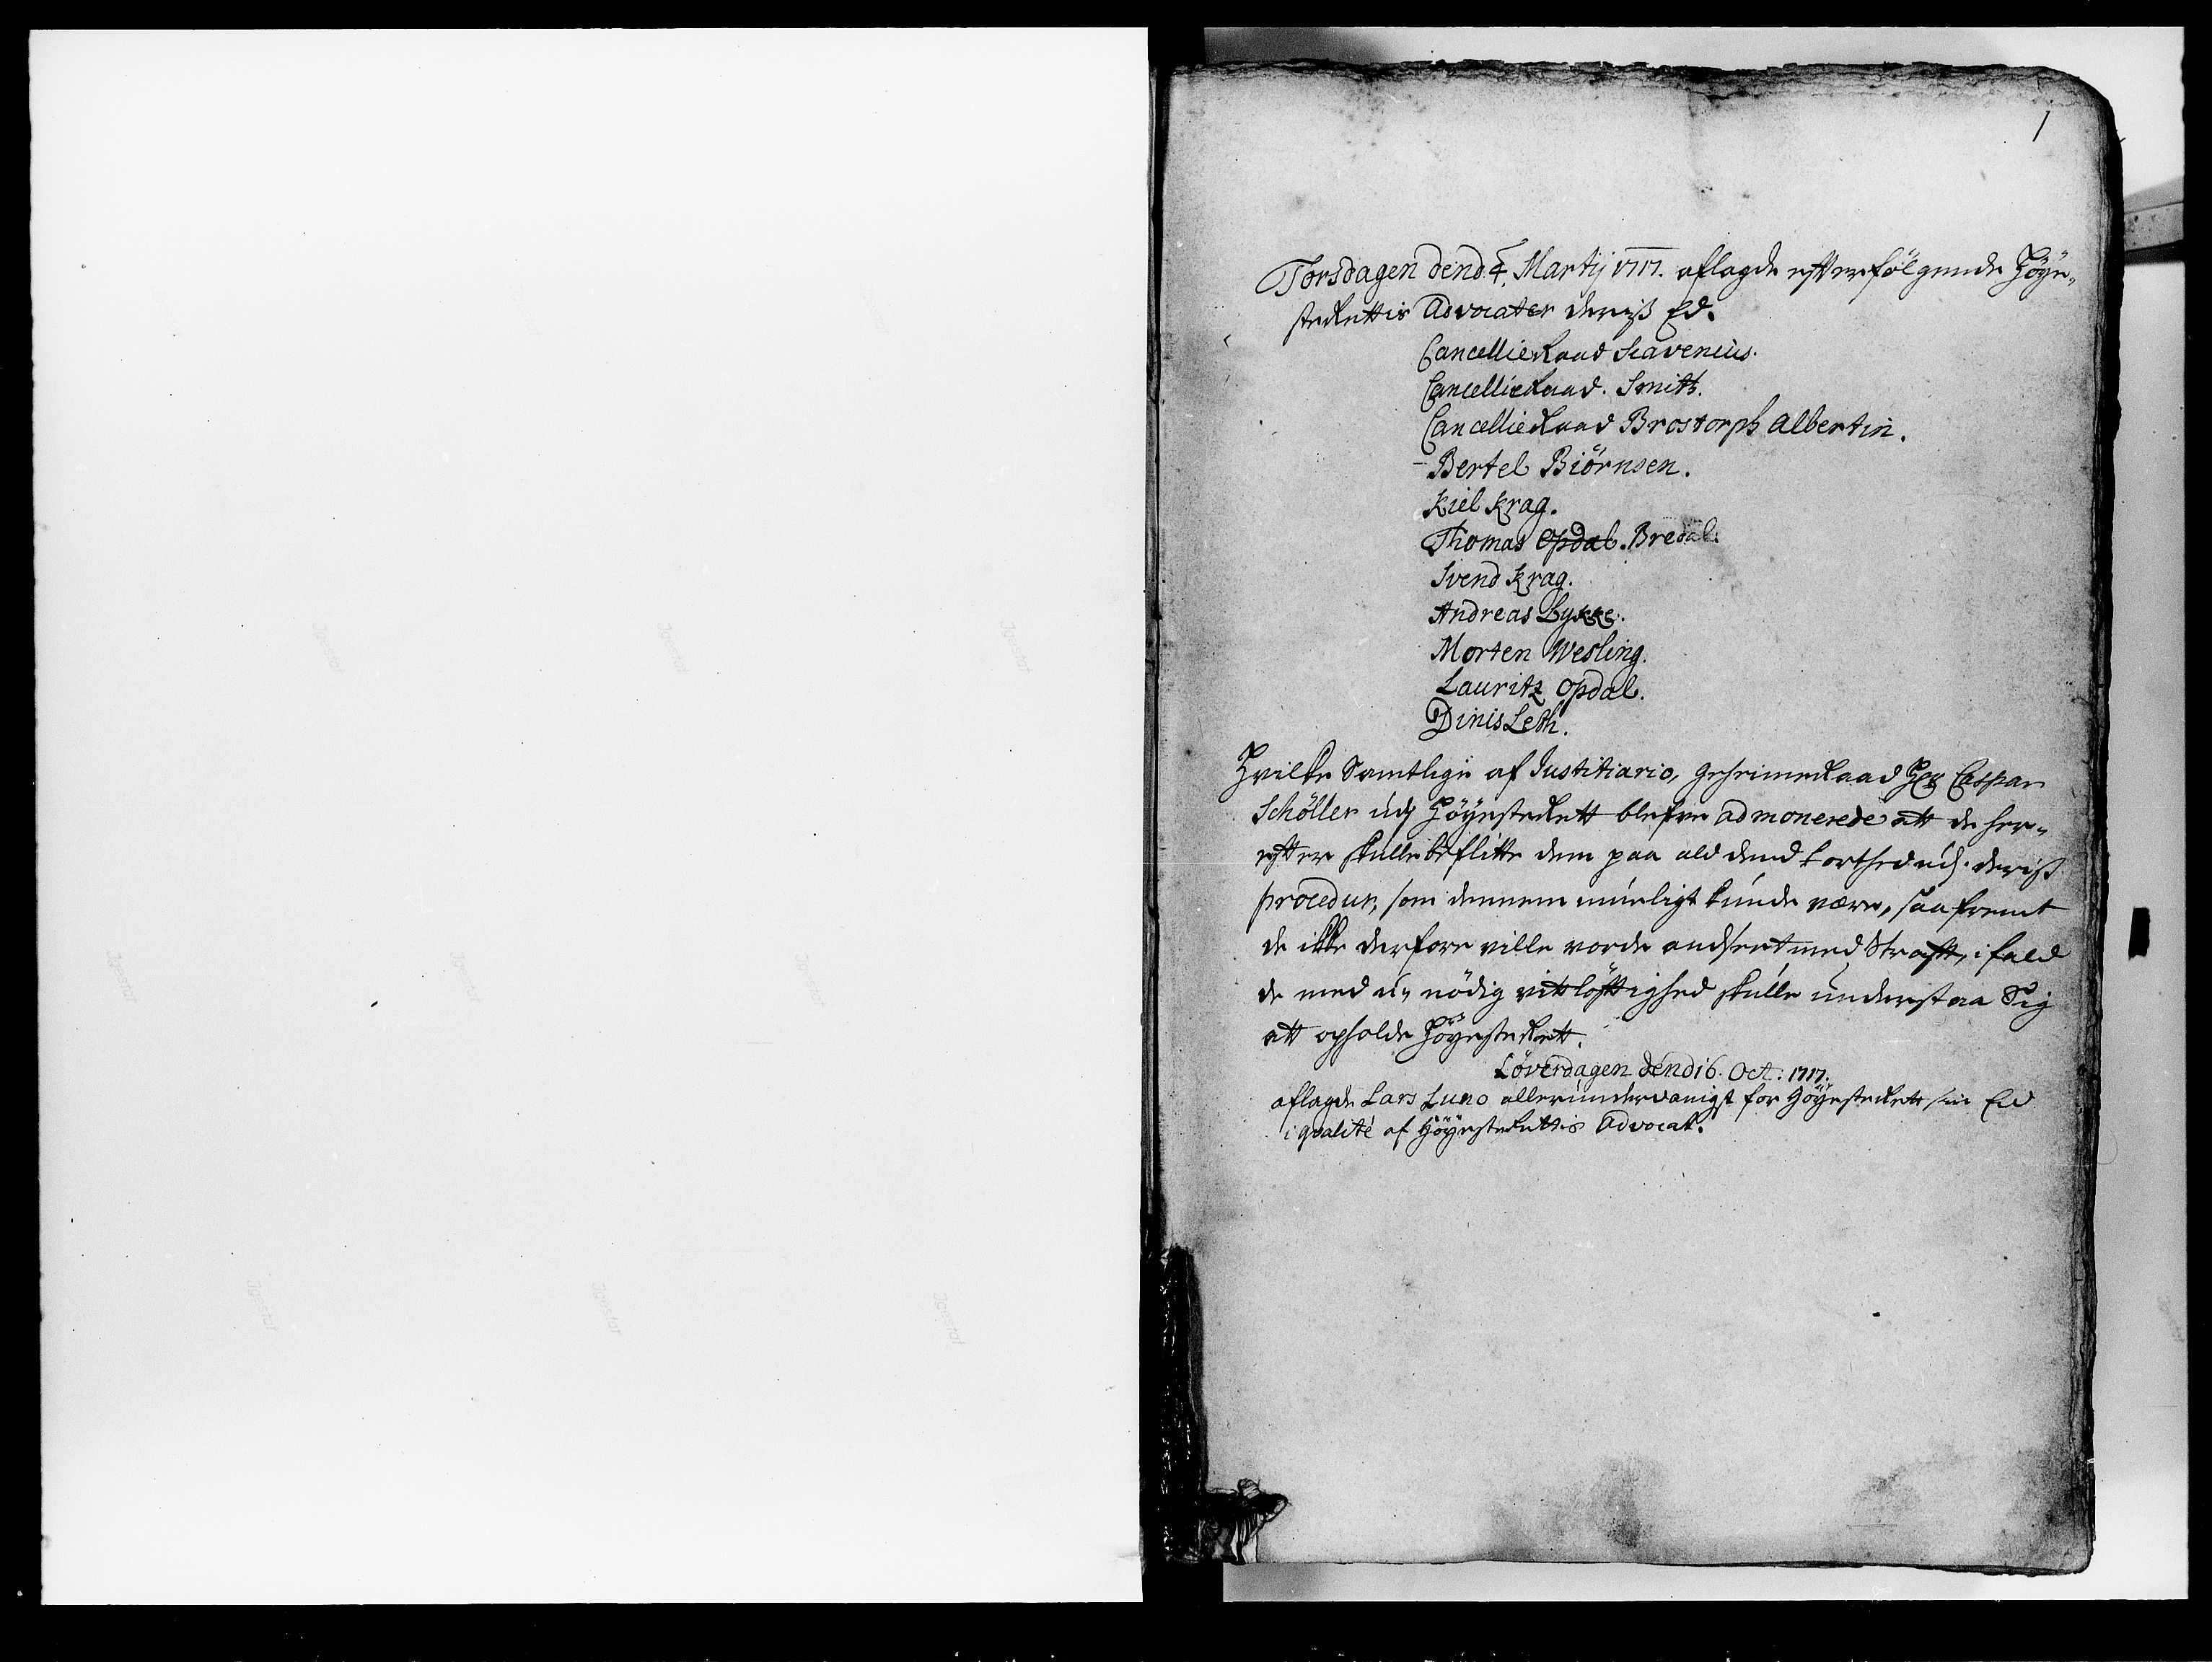 1
Torsdagen dend 4. Martij 1717. aflagde effterfölgende Höye-
steRettis Advocater deriss Ed.
CancellieRaad Scavenius.
CancellieRaad. Smith.
CancellieRaad Brostorph Albertin.
Bertel Biörnsen.
Kiel Krag.
Thomas Opdal. Bredal.
Svend Krag.
Andreas Lykke.
Morten Wesling.
Lauritz Opdal.
Dinis Leth.
Hvilke Samtlige af Justitiario, GeheimeRaad Hr Caspar
Schöller udj HöyesteRett blefve admonerede att de her-
effter skulle beflitte dem paa ald dend korthed udj. deriss
procedur, som dennem mueligt kunde være, saafremt
de ikke derfore ville vorde andseet med Straff, i fald
de med u-nödig vittlöfftighed skulle understaa Sig
att opholde HöyesteRett.
Löverdagen dend 16. Oct: 1717.
aflagde Lars Luno allerunderdanigst for HöyesteRett sin Eed
i qvalité af HöyesteRettis Advocat.